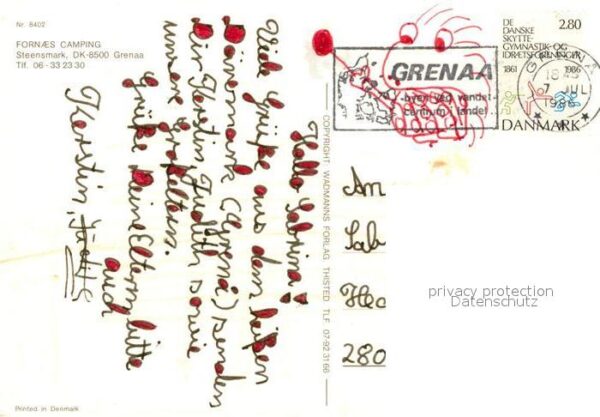 Nr. 8402
FORNÆS CAMPING
Steensmark, DK-8500 Grenaa
Tlf. 06 - 33 23 30
Hallo Sabrina!
Viele Grüße aus dem heißen
Dänemark (Grenå) senden
Dir Kerstin, Judith sowie
unsere Eltern.
Grüße Deine Eltern bitte
auch
Kerstin, Judith
COPYRIGHT WADMANNS FORLAG THISTED TLF 07-92 31 66
DE
DANSKE
SKYTTE-
GYMNASTIK- OG
IDRÆTSFORENINGER
2.80
1861 1986
DANMARK
GRENAA
- byen ved vandet
centrum i landet
GRENAA
7 JUL
1986
Am
Sab
280
privacy protection
Datenschutz
Printed in Denmark